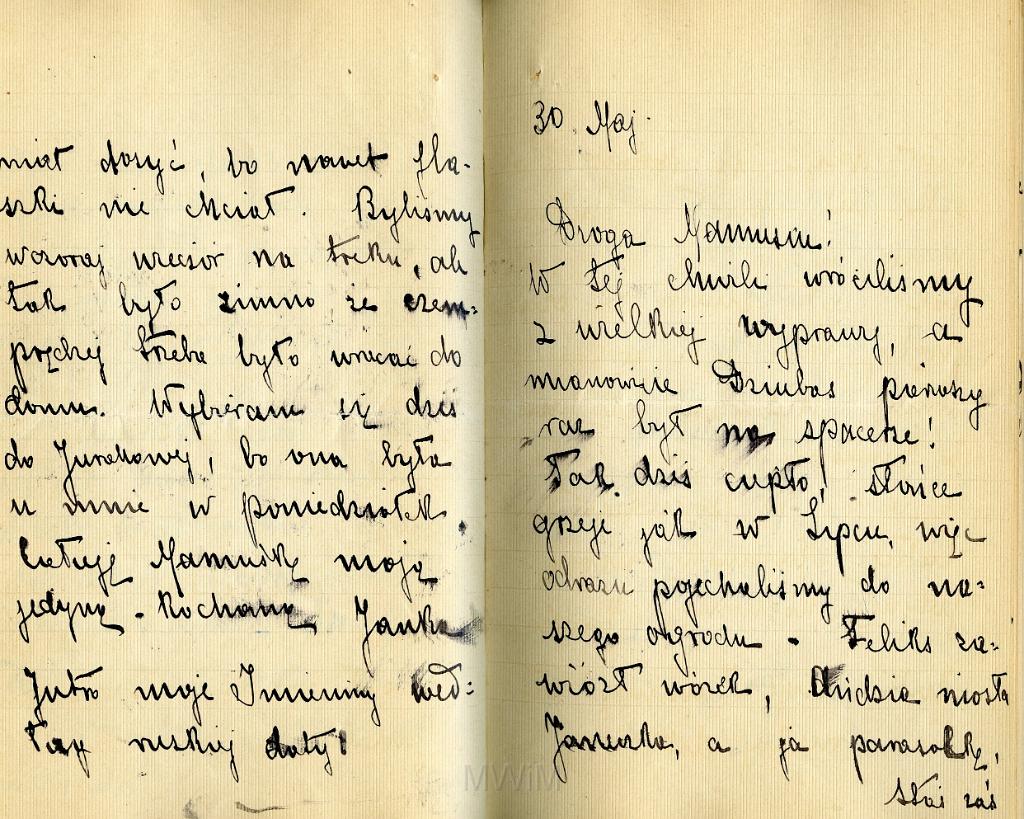 miał dosyć, bo nawet fla-
szki nie chciał. Byliśmy
wczoraj wieczór na treku, ale
tak było zimno, że czem-
prędzej trzeba było wracać do
domu. Wybieram się dziś
do Jurakowej, bo ona była
u mnie w poniedziałek.
Całuję Mamuśkę moją
jedyną - Kochaną Janka
Jutro moje Imieniny wed-
ług ruskiej daty!
30 Maj.
Droga Mamusiu!
W tej chwili wróciliśmy
z wielkiej wyprawy, a
mianowicie Dziubas pierwszy
raz był na spacerze!
Tak dziś ciepło, słońce
grzeje jak w Lipcu, więc
odrazu pojechaliśmy do na-
szego ogrodu - Feliks za-
wiózł wózek, dzidzię niosła
Januszka, a ja parasolkę,
Staś zaś
MWiM